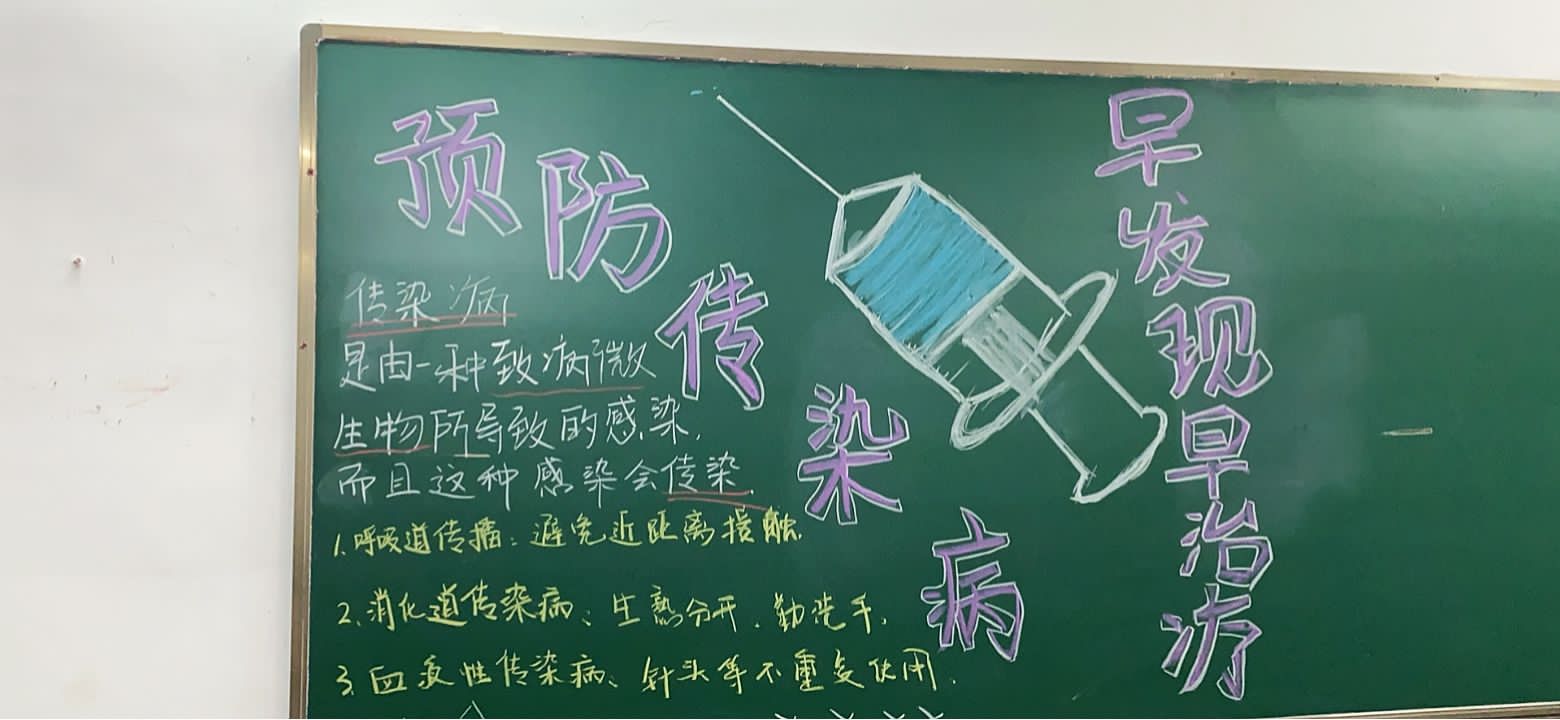 预防传染病
早发现早治疗
传染病
是由一种致病微
生物所导致的感染,
而且这种感染会传染.
1.呼吸道传播:避免近距离接触.
2.消化道传染病、生熟分开.勤洗手.
3.血液性传染病、针头等不重复使用.